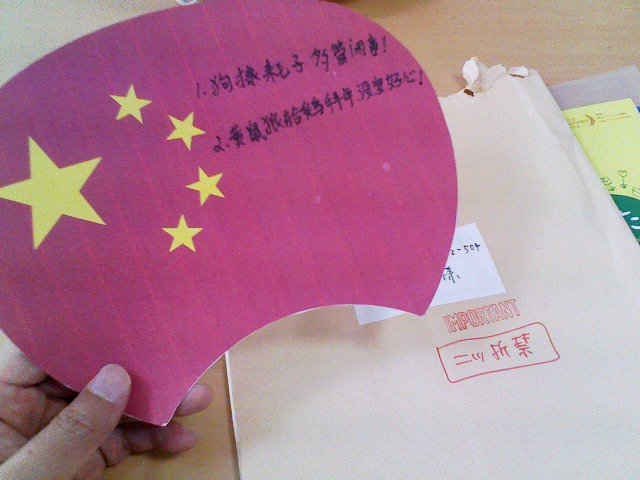 1. 狗撵耗子 多管闲事!
2. 黄鼠狼给鸡拜年 没安好心!
2-504
様
IMPORTANT